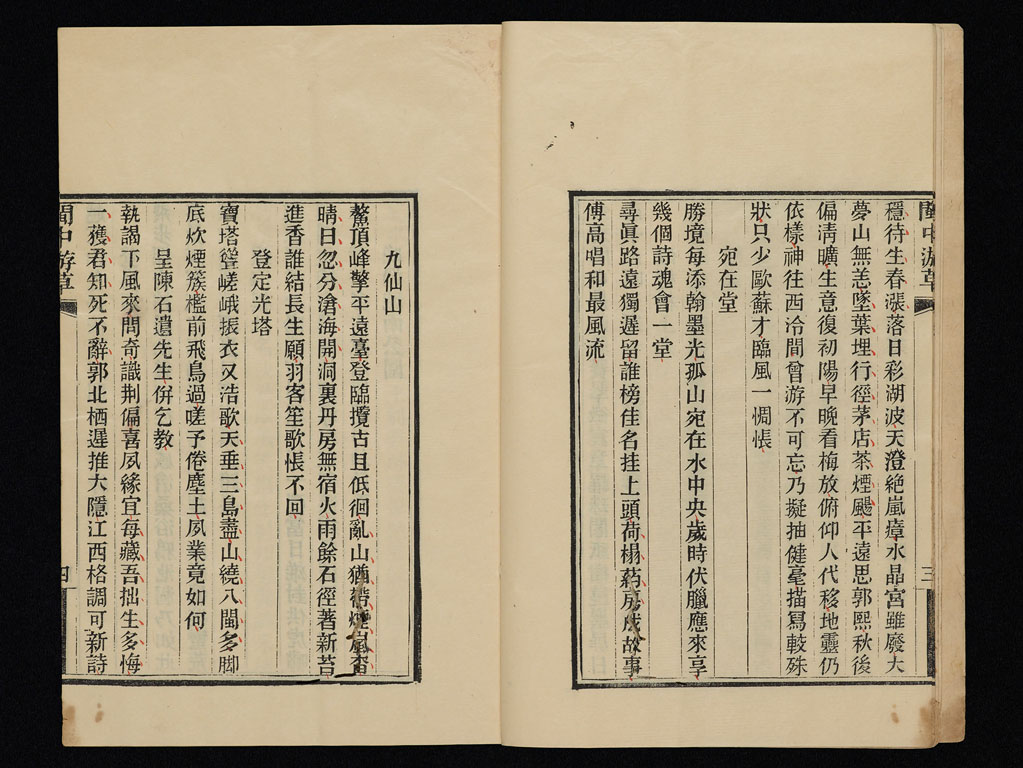 閩中游草
三
穩待生春漲落日彩湖波天澄絶嵐瘴水晶宮雖廢大
夢山無恙墜葉埋行徑茅店茶煙颺平遠思郭熙秋後
偏淸曠生意復初陽早晚看梅放俯仰人代移地靈仍
依樣神往西泠間曾游不可忘乃擬抽健毫描寫較殊
狀只少歐蘇才臨風一惆悵
宛在堂
勝境每添翰墨光孤山宛在水中央歲時伏臘應來享
幾個詩魂會一堂
尋眞路遠獨遲留誰榜佳名挂上頭荷榻葯房成故事
傅高唱和最風流
九仙山
鰲頂峰擎平遠臺登臨攬古且低徊亂山猶帶煙嵐杳
晴日忽分滄海開洞裏丹房無宿火雨餘石徑著新苔
進香誰結長生願羽客笙歌悵不回
登定光塔
寶塔聳嵯峨振衣又浩歌天垂三島盡山繞八閩多脚
底炊煙簇檻前飛鳥過嗟予倦塵土夙業竟如何
呈陳石遺先生倂乞教
執謁下風來問奇識荆偏喜夙緣宜每藏吾拙生多悔
一獲君知死不辭郭北栖遲推大隱江西格調可新詩
閩中游草
四